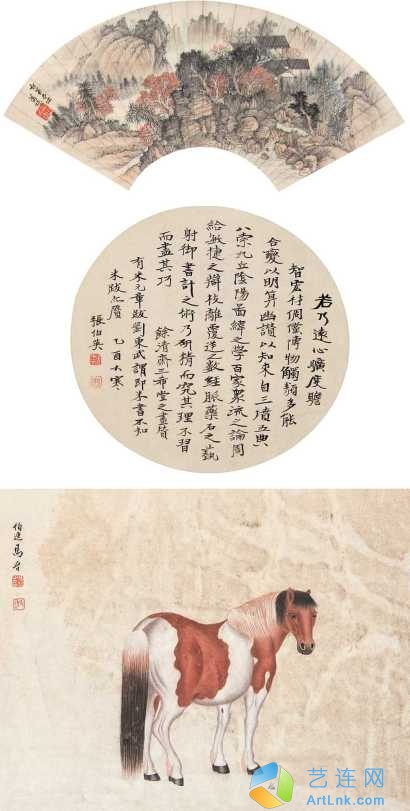 若乃遠心曠度贍
智宏材倜儻博物觸類多能
合變以明算幽讚以知來自三墳五典
八索九丘陰陽圖緯之學百家衆流之論周
給敏捷之辯枝離覆逆之數經脈藥石之藝
射御書計之術乃研精而究其理不習
而盡其巧 餘清齋三希堂之畫贊
有米元章跋劉東武謂即米書不知
米跋亦贋 乙酉大寒
張伯英
伯逸馬晉
艺连网
ArtLnk.com